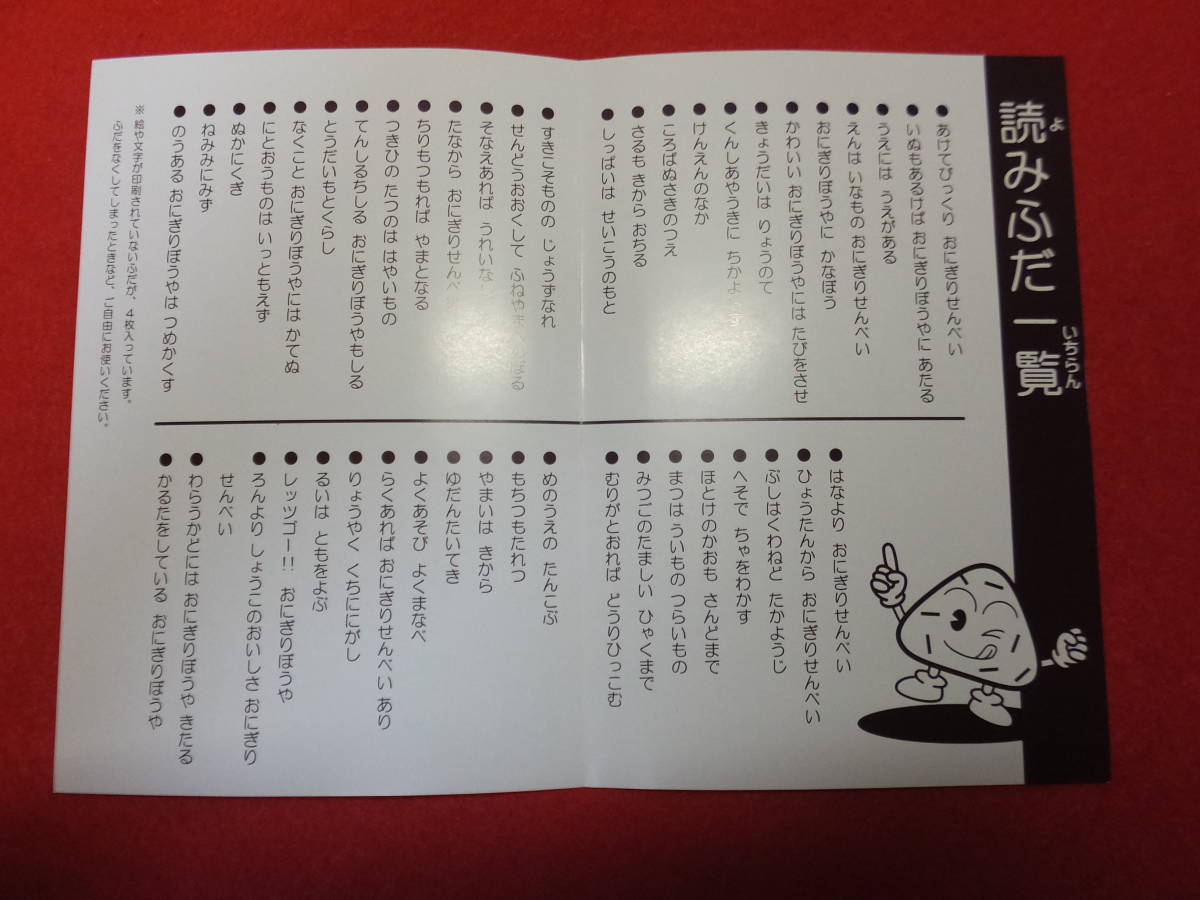 読みふだ一覧
よ
いちらん
●あけてびっくり おにぎりせんべい
●いぬもあるけば おにぎりぼうやに あたる
●うえには うえがある
●えんは いなもの おにぎりせんべい
●おにぎりぼうやに かなぼう
●かわいい おにぎりぼうやには たびをさせ
●きょうだいは りょうのて
●くんしあやうきに ちかよ
●けんえんのなか
●ころばぬさきのつえ
●さるも きから おちる
●しっぱいは せいこうのもと
●すきこそものの じょうずなれ
●せんどうおおくして ふねやま
●そなえあれば うれいな
●たなから おにぎりせんべ
●ちりもつもれば やまとなる
●つきひの たつのは はやいもの
●てんしるちしる おにぎりぼうやもしる
●とうだいもとくらし
●なくこと おにぎりぼうやには かてぬ
●にとおうものは いっともえず
●ぬかにくぎ
●ねみみにみず
●のうある おにぎりぼうやは つめかくす
●はなより おにぎりせんべい
●ひょうたんから おにぎりせんべい
●ぶしはくわねど たかようじ
●へそで ちゃをわかす
●ほとけのかおも さんどまで
●まつは ういもの つらいもの
●みつごのたましい ひゃくまで
●むりがとおれば どうりひっこむ
●めのうえの たんこぶ
●もちつもたれつ
●やまいは きから
●ゆだんたいてき
●よくあそび よくまなべ
●らくあれば おにぎりせんべい あり
●りょうやく くちににがし
●るいは ともをよぶ
●レッツゴー!! おにぎりぼうや
●ろんより しょうこのおいしさ おにぎり
せんべい
●わらうかどには おにぎりぼうや きたる
●かるたをしている おにぎりぼうや
※ 絵や文字が印刷されていないふだが、4枚入っています。
ふだをなくしてしまったときなど、ご自由にお使いください。